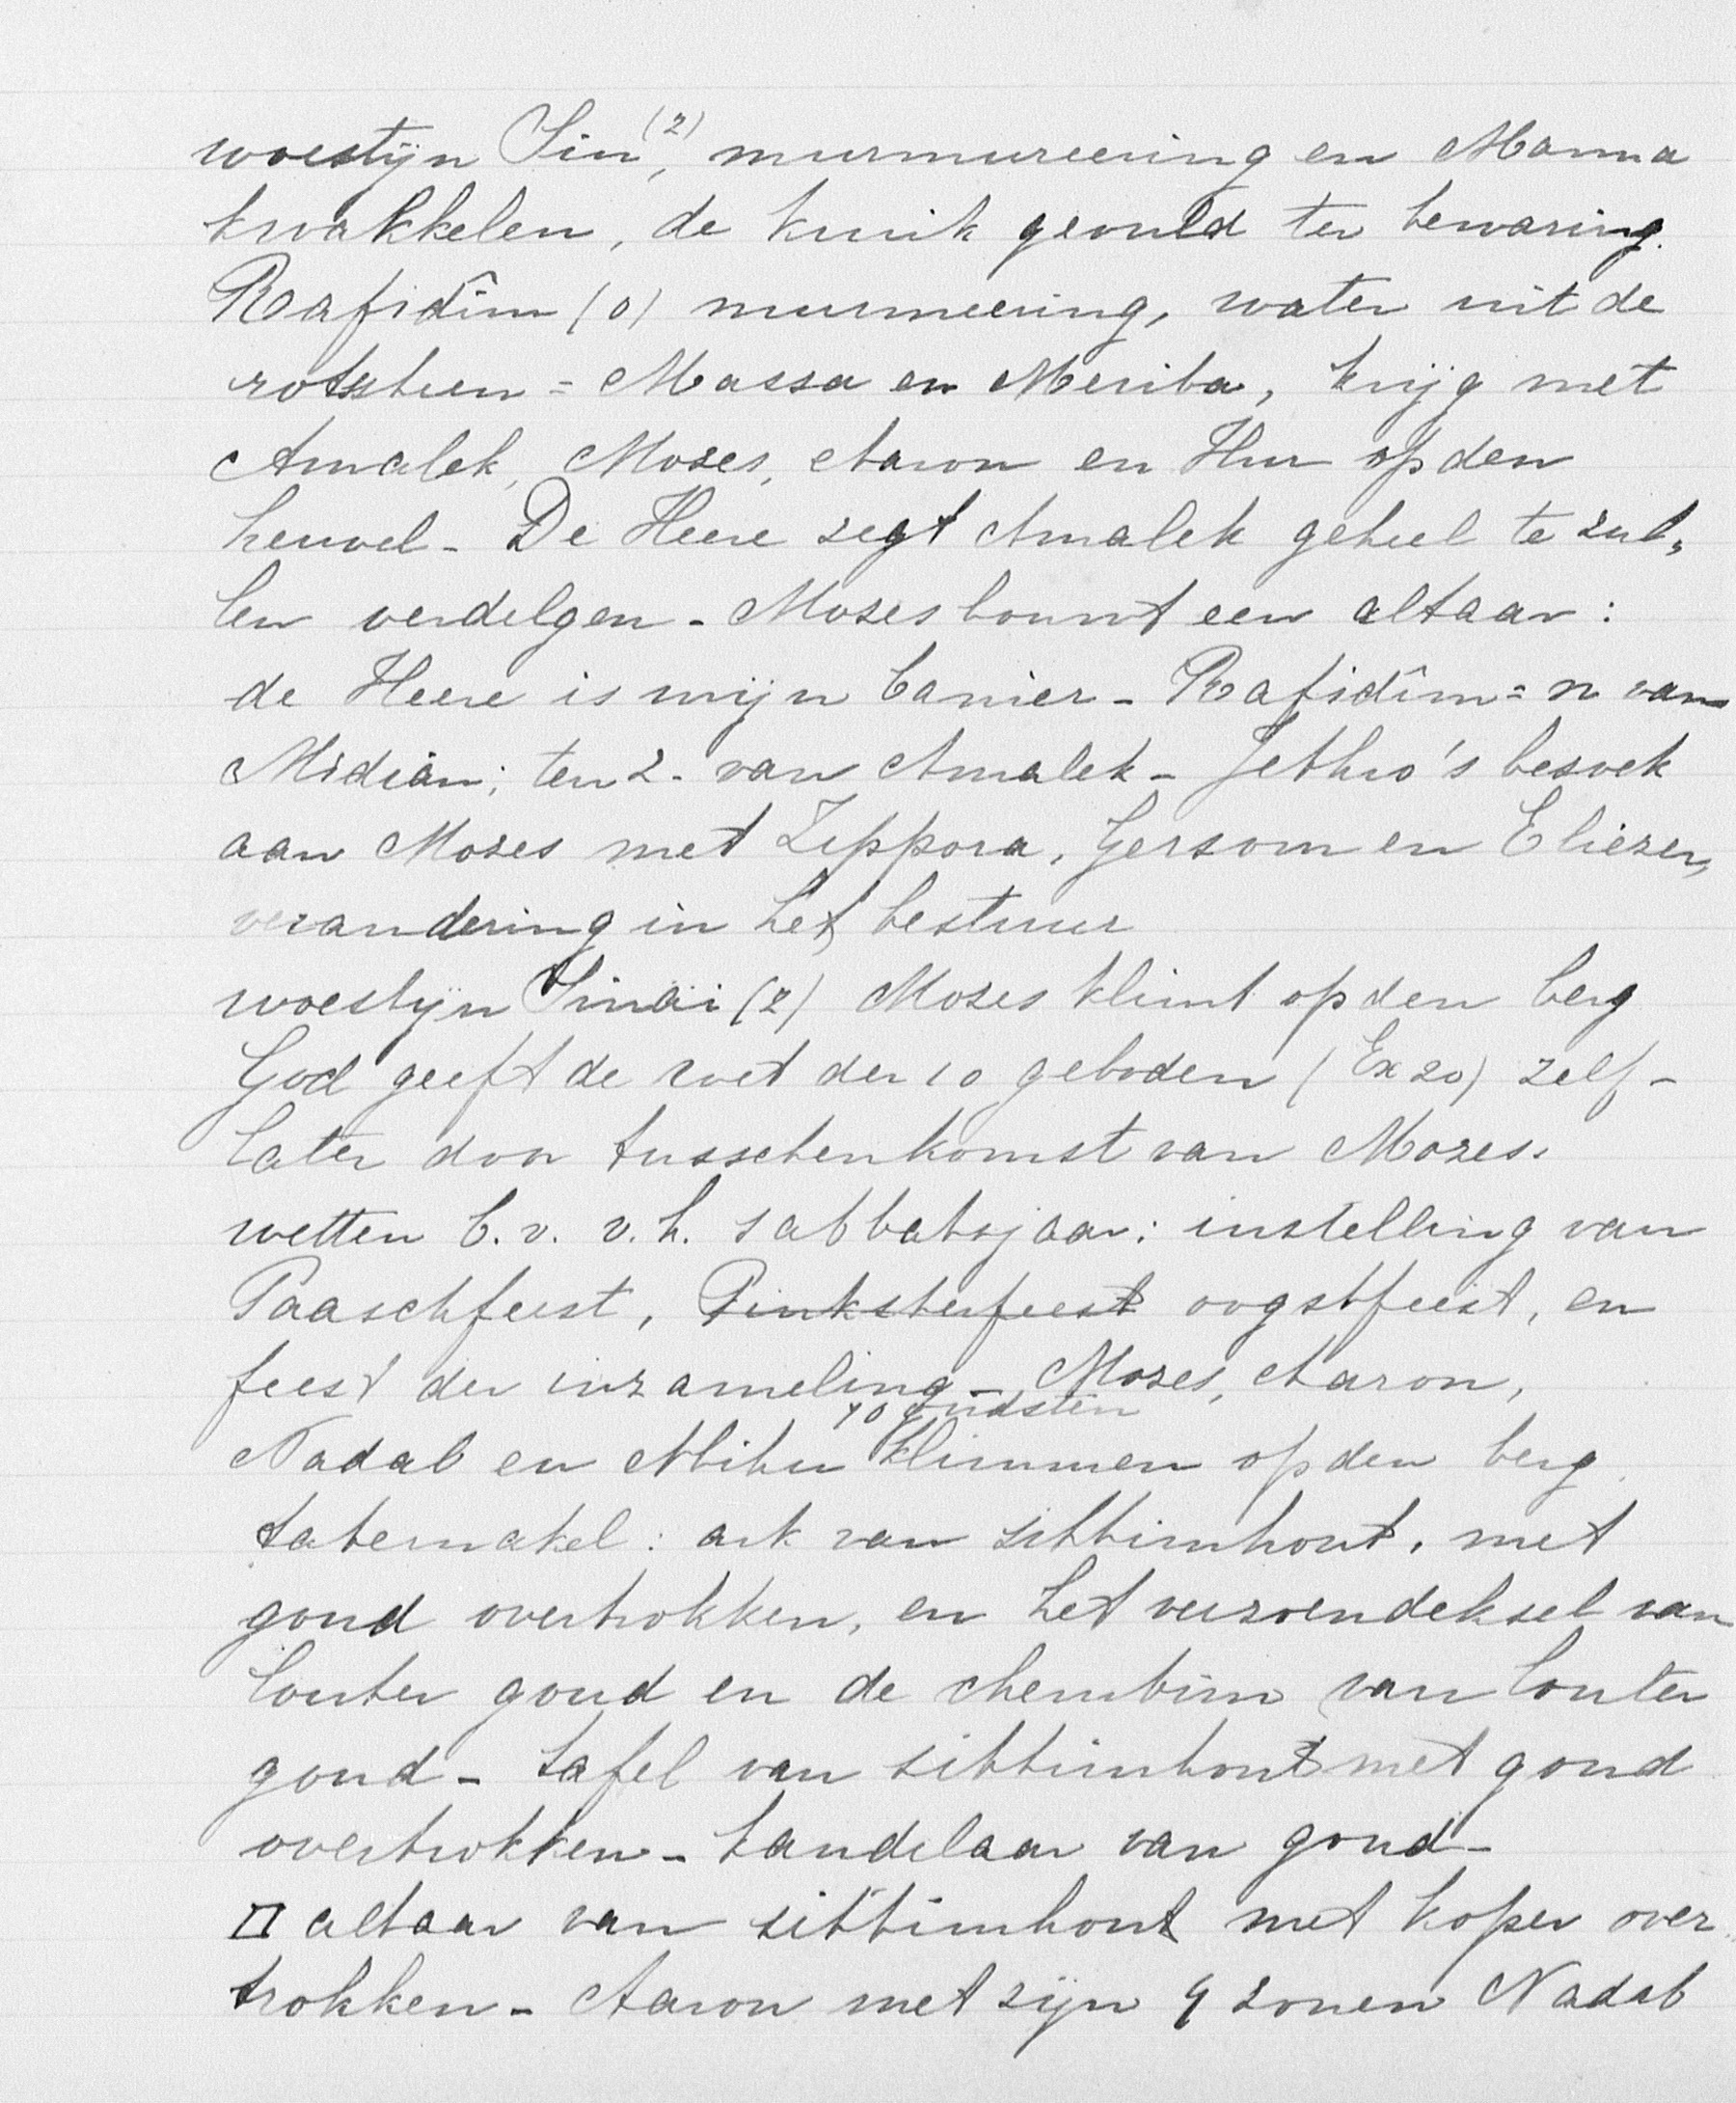 woestijn Sin (2), murmureering en Manna
kwakkelen, de kruik gevuld ter bewaring.
Rafidîm (o) murmeering, water uit de
rotssteen = Massa en Meriba, krijg met
Amalek, Mozes, Aaron en Hur op den
heuvel - De Heere zegt Amalek geheel te zul„
len verdelgen - Mozes bouwt een altaar :
de Heere is mijn banier - Rafidîm = n van
Midian; ten z. van Amalek - Jethro's bezoek
aan Mozes met Zippora, Gersom en Eliezer,
verandering in het bestuur
woestijn Sinaï (z) Mozes klimt op den berg
God geeft de wet der 10 geboden (Ex 20) zelf -
later door tusschenkomst van Mozes.
wetten b.v. v.h. sabbatsjaar : instelling van
Paaschfeest, Pinksterfeest oogstfeest, en
feest der inzameling -, Mozes, Aaron,
70 oudsten
Nadab en Abihu klimmen op den berg.
tabernakel : ark van sittimhout, met
goud overtrokken, en het verzoendeksel van
louter goud en de cherubim van louter
goud - tafel van sittimhout met goud
overtrokken - kandelaar van goud -
□ altaar van sittimhout met koper over„
trokken - Aaron met zijn 4 zonen Nadab